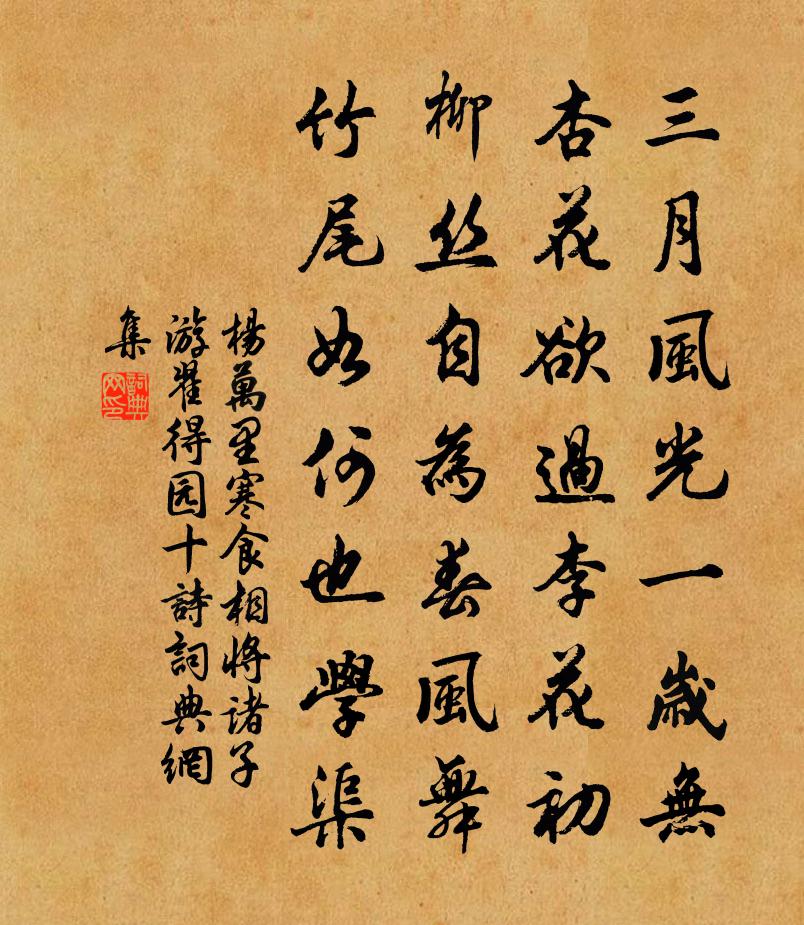 三月風光一歲無
杏花欲過李花初
柳丝自為春風舞
竹尾如何也學渠
楊萬里寒食相將諸子
游翟得园十詩詞典網
集
詞典
网印